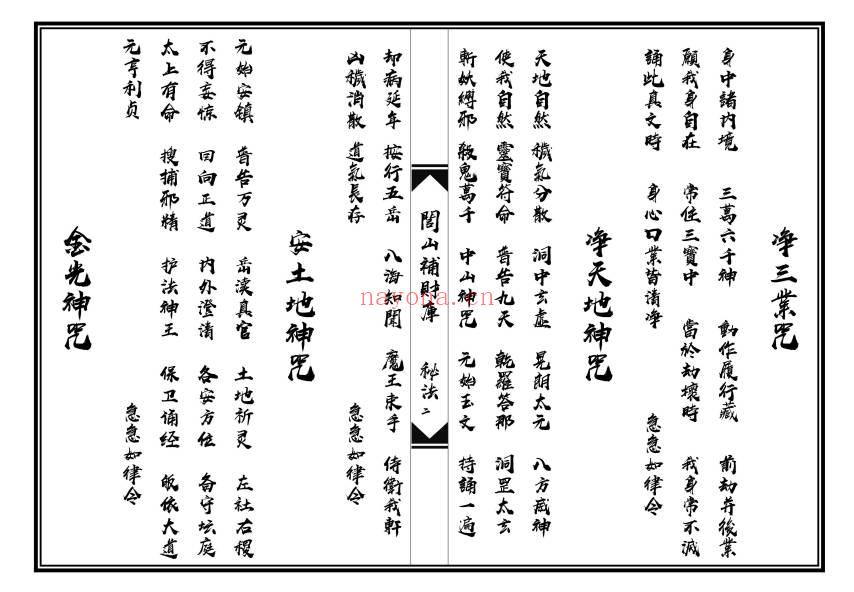 净三業咒
身中諸内境 三萬六千神 動作履行藏 前劫并後業
願我身自在 常住三寶中 當於劫壞時 我身常不滅
誦此真文時 身心口業皆清净 急急如律令
净天地神咒
天地自然 穢氣分散 洞中玄虛 晃朗太元 八方威神
使我自然 靈寶符命 普告九天 乾羅答那 洞罡太玄
斬妖縛邪 殺鬼萬千 中山神咒 元始玉文 持誦一遍
閭山補財庫 秘法二
却病延年 按行五岳 八海知聞 魔王束手 侍衛我軒
凶穢消散 道氣長存 急急如律令
安土地神咒
元始安镇 普告万灵 岳渎真官 土地祈灵 左社右稷
不得妄惊 回向正道 内外澄清 各安方位 备守坛庭
太上有命 搜捕邪精 护法神王 保卫诵经 皈依大道
元亨利贞 急急如律令
金光神咒
nayona.cn